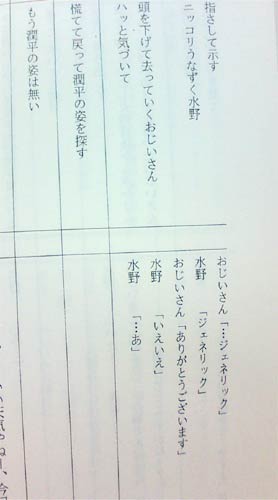 指さして示す
ニッコリうなずく水野
頭を下げて去っていくおじいさん
ハッと気づいて
慌てて戻って潤平の姿を探す
もう潤平の姿は無い
おじいさん「…ジェネリック」
水野　「ジェネリック」
おじいさん「ありがとうございます」
水野　「いえいえ」
水野　「…あ」